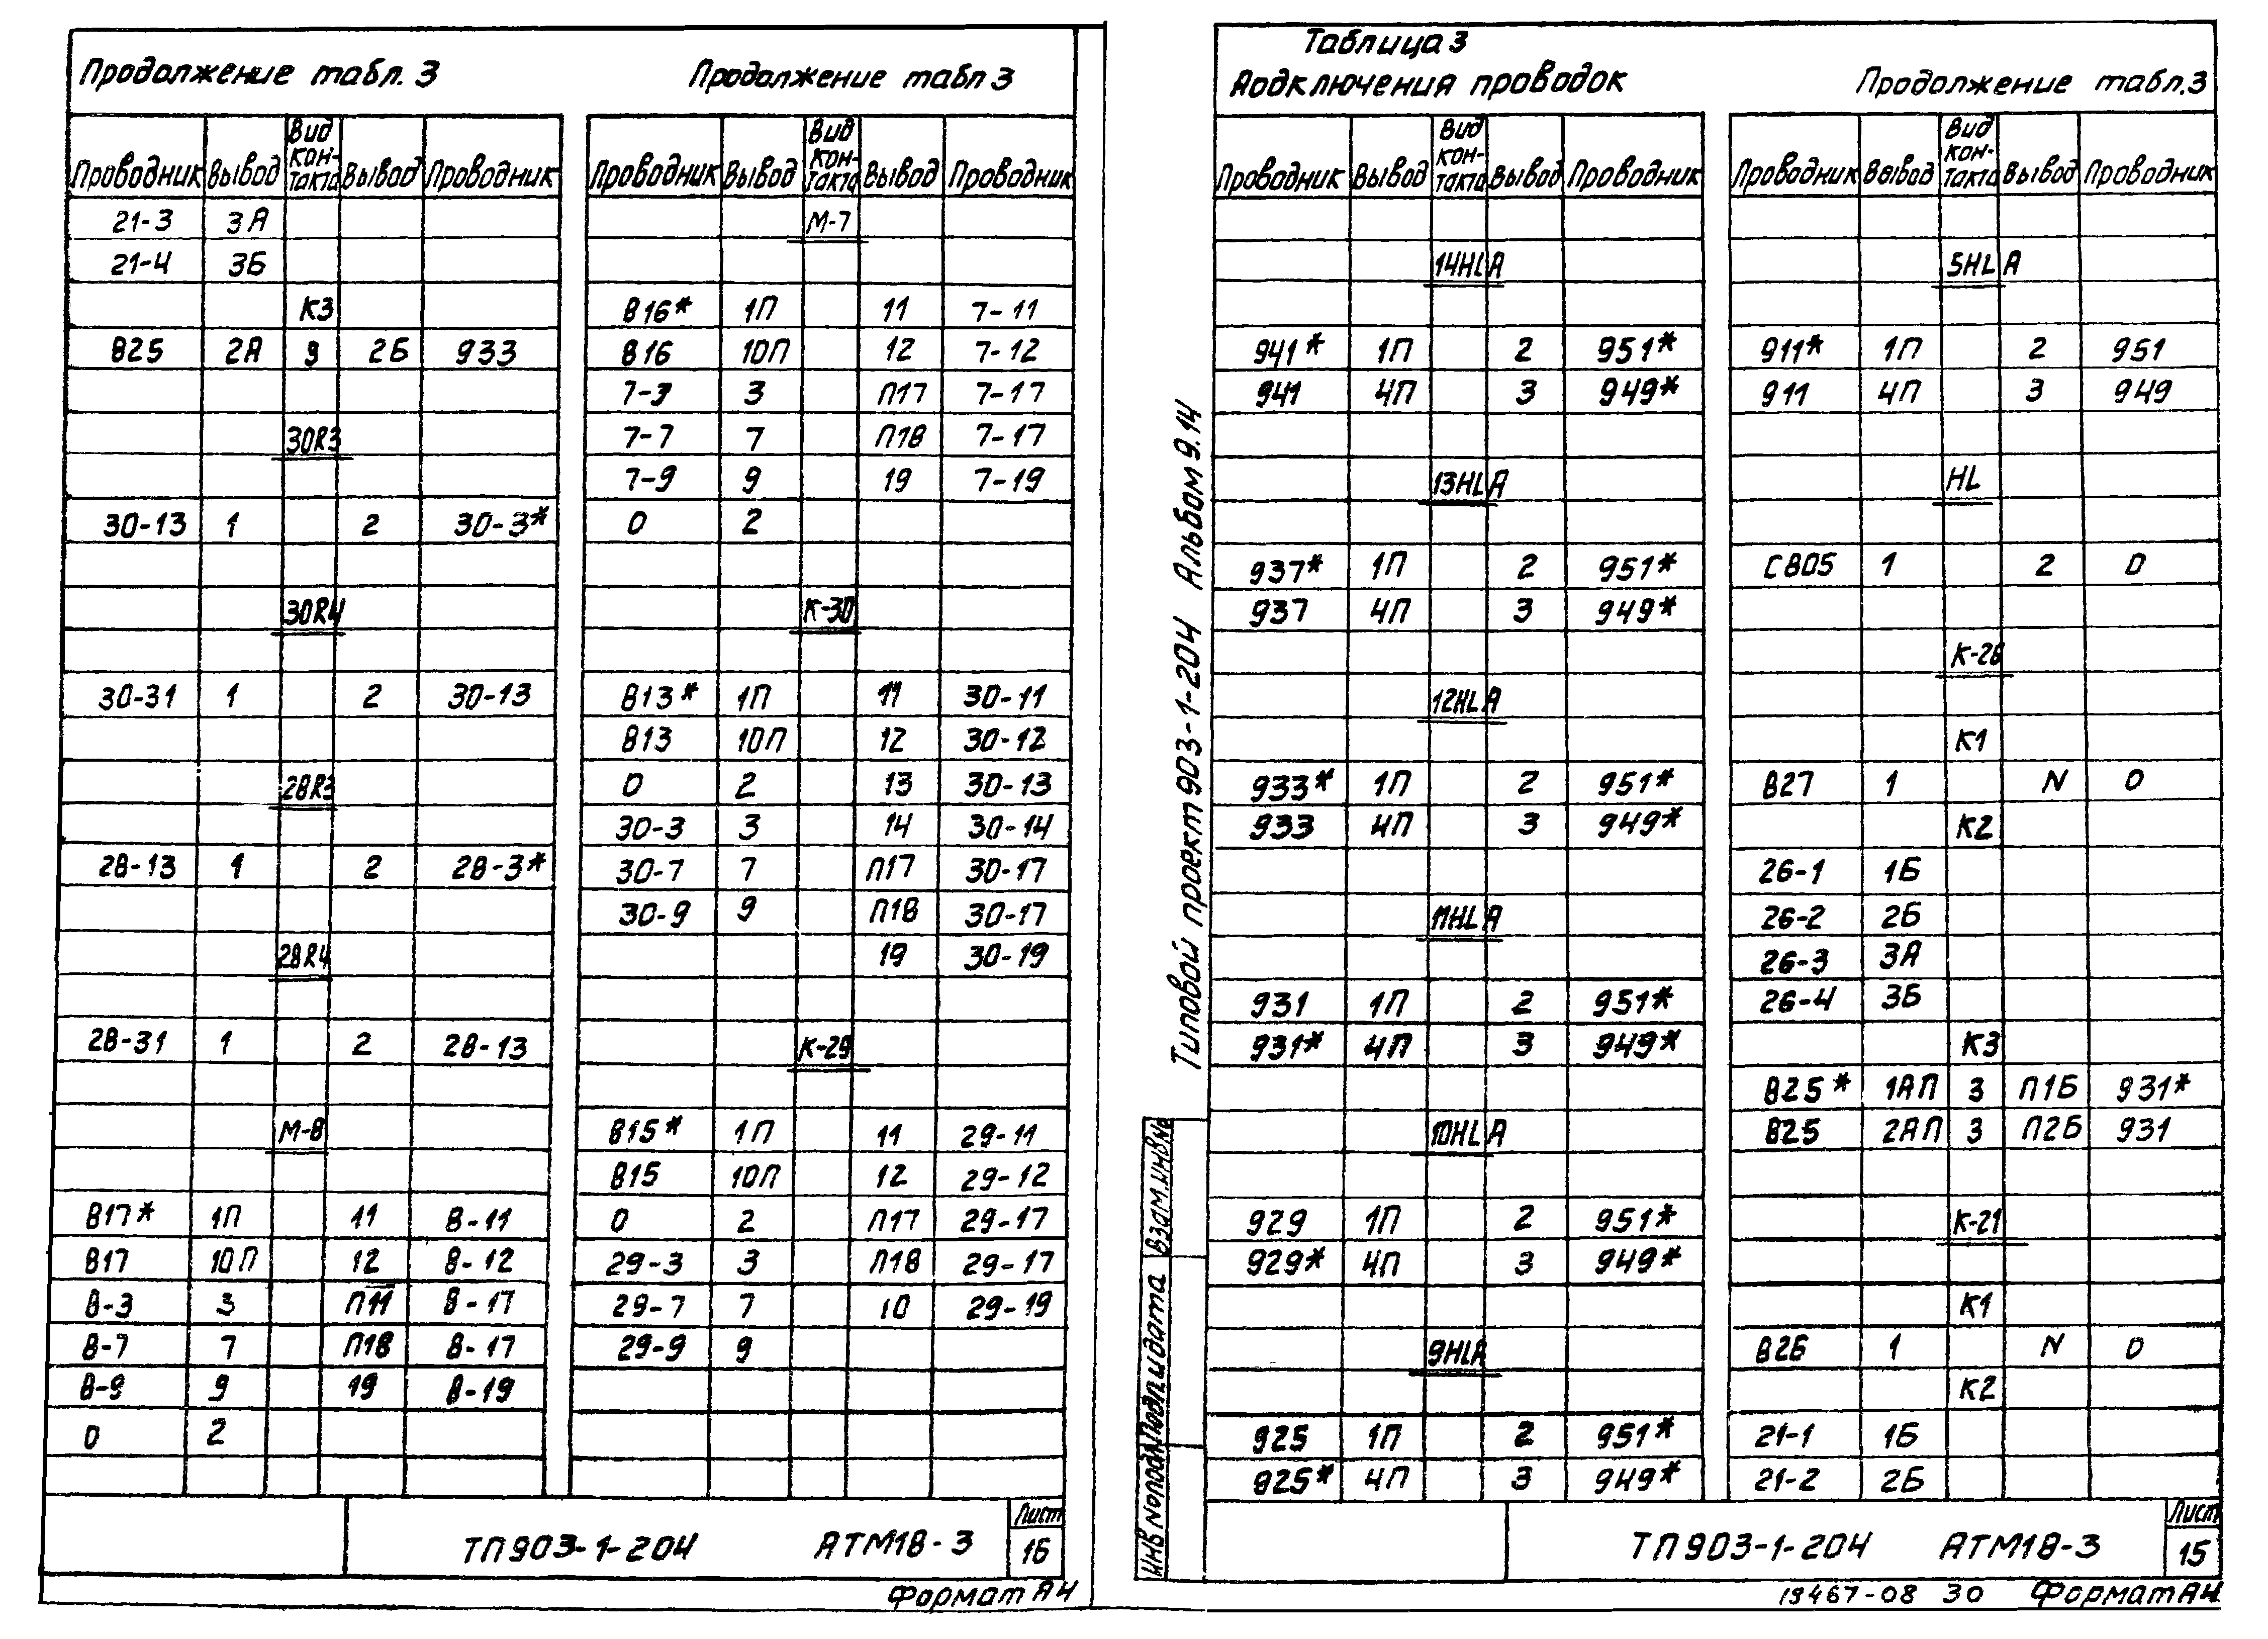 Продолжение табл. 3
Проводник Вывод Вид контакта Вывод Проводник
21-3 3А
21-4 3Б
К3
825 2А 9 2Б 933
30R3
30-13 1 2 30-3*
30R4
30-31 1 2 30-13
28R3
28-13 1 2 28-3*
28R4
28-31 1 2 28-13
М-8
817* 1П 11 8-11
817 10П 12 8-12
8-3 3 П11 8-17
8-7 7 П18 8-17
8-9 9 19 8-19
0 2
Продолжение табл 3
Проводник Вывод Вид кон-такта Вывод Проводник
М-7
816* 1П 11 7-11
816 10П 12 7-12
7-3 3 П17 7-17
7-7 7 П18 7-17
7-9 9 19 7-19
0 2
К-30
813* 1П 11 30-11
813 10П 12 30-12
0 2 13 30-13
30-3 3 14 30-14
30-7 7 П17 30-17
30-9 9 П18 30-17
19 30-19
К-29
815* 1П 11 29-11
815 10П 12 29-12
0 2 П17 29-17
29-3 3 П18 29-17
29-7 7 10 29-19
29-9 9
ТП903-1-204 АТМ18-3
Лист
16
Формат А4
Типовой проект 903-1-204 Альбом 9.14
Взам.инв№
Подп.и дата
Инв №подл.
Таблица 3
Подключения проводок
Проводник Вывод Вид кон-такта Вывод Проводник
14HLA
941* 1П 2 951*
941 4П 3 949*
13HLA
937* 1П 2 951*
937 4П 3 949*
12HLA
933* 1П 2 951*
933 4П 3 949*
11HLA
931 1П 2 951*
931* 4П 3 949*
10HLA
929 1П 2 951*
929* 4П 3 949*
9HLA
925 1П 2 951*
925* 4П 3 949*
Продолжение табл.3
Проводник Вывод Вид кон-такта Вывод Проводник
5HLA
911* 1П 2 951
911 4П 3 949
HL
С805 1 2 0
К-26
К1
827 1 N 0
К2
26-1 1Б
26-2 2Б
26-3 3А
26-4 3Б
К3
825* 1АП 3 П1Б 931*
825 2АП 3 П2Б 931
К-21
К1
826 1 N 0
К2
21-1 1Б
21-2 2Б
ТП903-1-204 АТМ18-3
Лист
15
19467-08 30 Формат А4